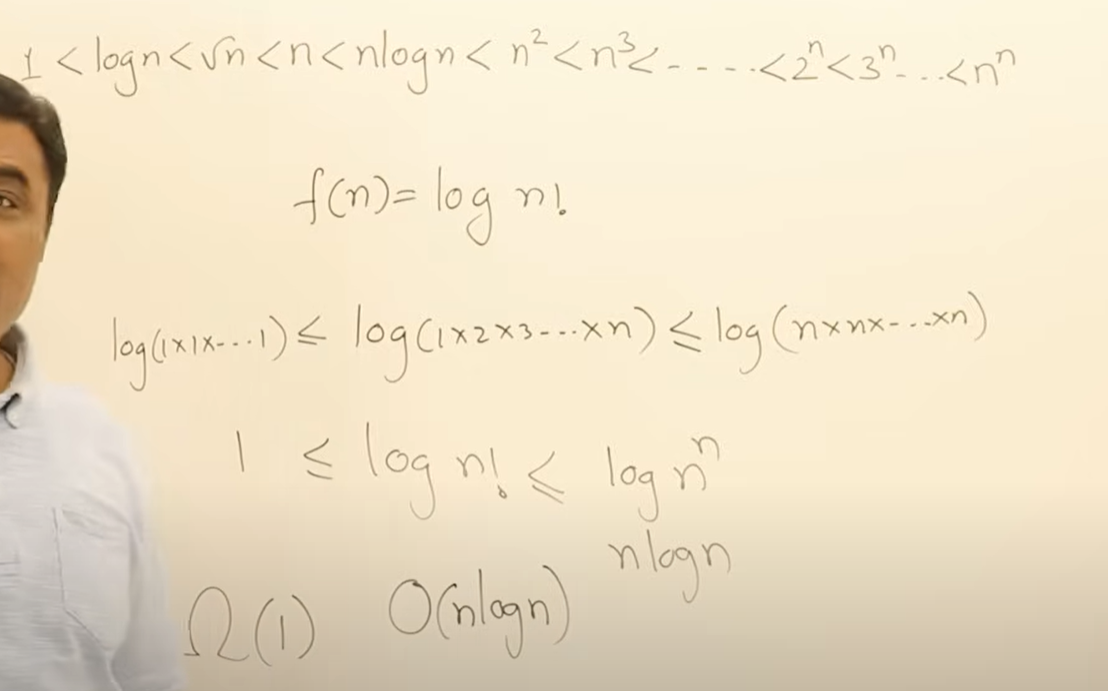 1 < logn < √n < n < nlogn < n² < n³ < ---- < 2ⁿ < 3ⁿ --- < nⁿ
f(n) = log n!
log(1×1×---1) ≤ log(1×2×3---×n) ≤ log(n×n×---×n)
1 ≤ log n! ≤ log nⁿ
nlogn
Ω(1) O(nlogn)